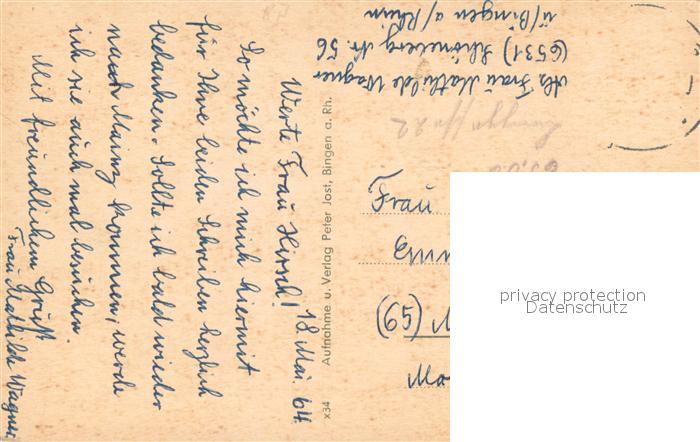 18. Mai. 64.
Werte Frau Hirsch!
So möchte ich mich hiermit
für Ihre beiden Schreiben herzlich
bedanken. Sollte ich bald wieder
nach Mainz kommen, werde
ich sie auch mal besuchen.
Mit freundlichem Gruß.
Frau Mathilde Wagner.
x34 Aufnahme u. Verlag Peter Jost, Bingen a. Rh.
Abs. Frau Mathilde Wagner
(6531) Schöneberg Nr 56
ü/Bingen a/Rhein
Frau
(65) M
privacy protection
Datenschutz